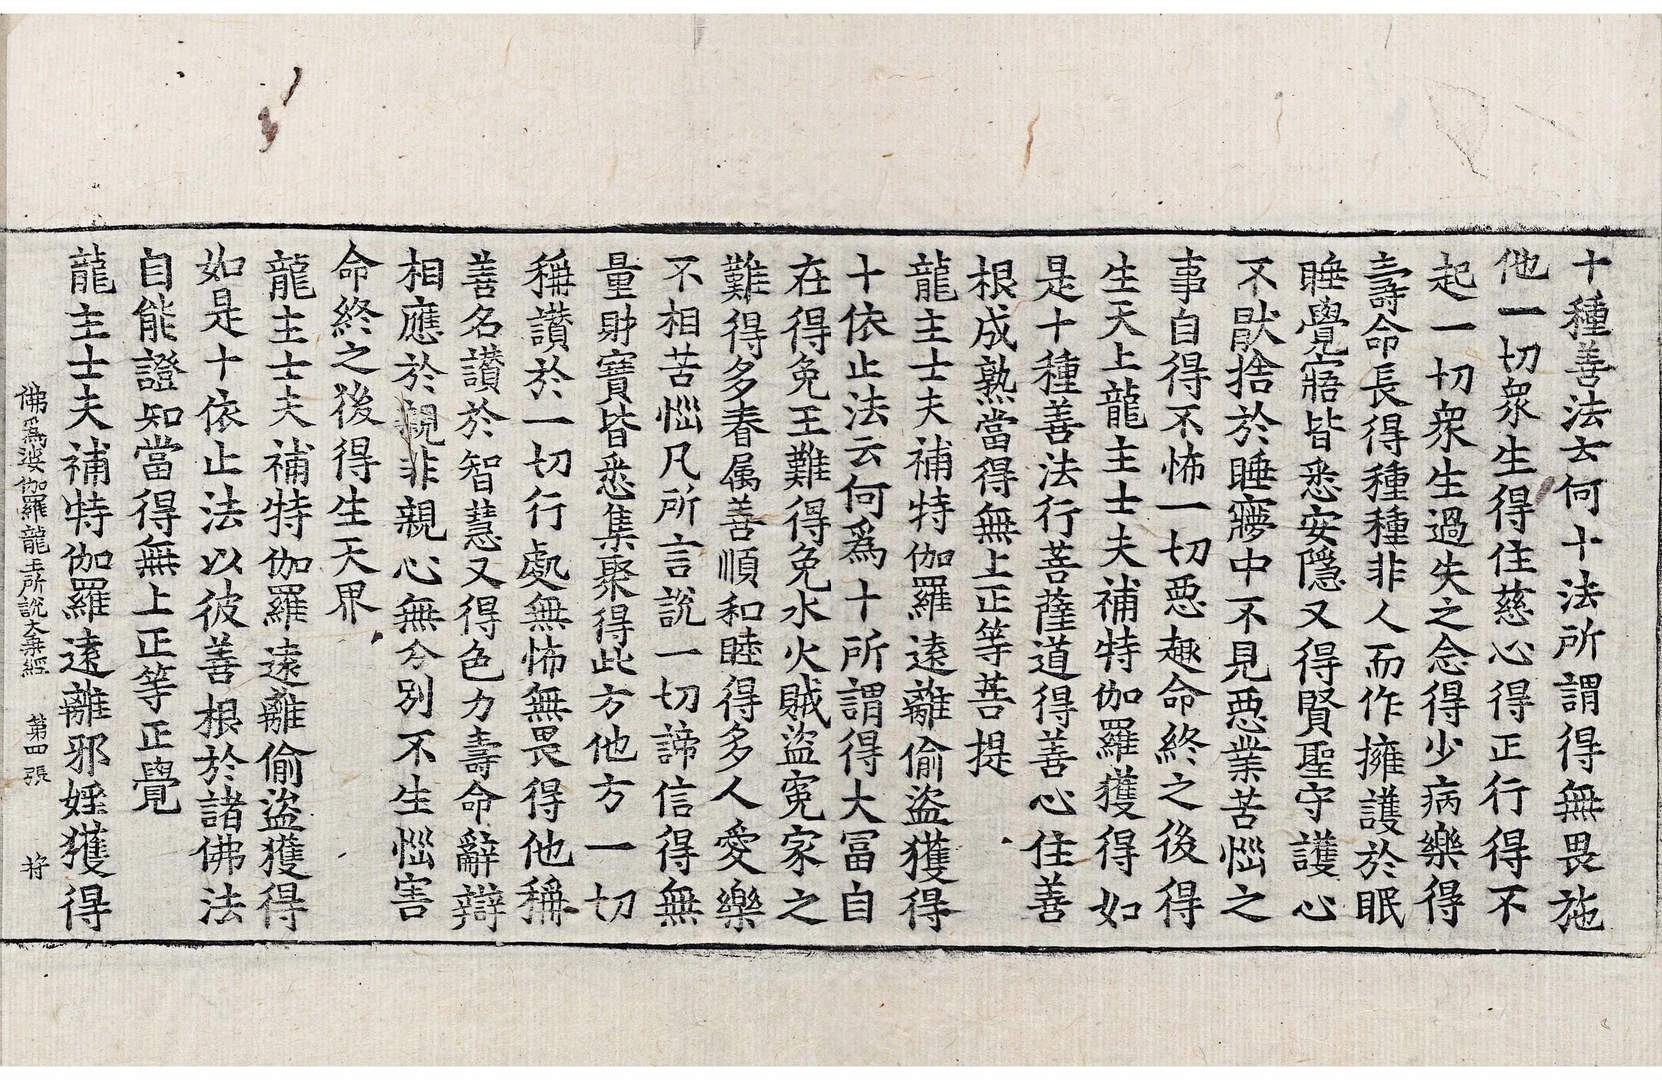 十種善法云何十法所謂得無畏施
他一切衆生得住慈心得正行得不
起一切衆生過失之念得少病樂得
壽命長得種種非人而作擁護於眠
睡覺寤皆悉安隱又得賢聖守護心
不猒捨於睡㝱中不見悪業苦惱之
事自得不怖一切悪趣命終之後得
生天上龍主士夫補特伽羅獲得如
是十種善法行菩薩道得善心住善
根成熟當得無上正等菩提
龍主士夫補特伽羅遠離偷盗獲得
十依止法云何爲十所謂得大冨自
在得免王難得免水火賊盗寃家之
難得多眷属善順和睦得多人愛樂
不相苦惱凡所言說一切諦信得無
量財寶皆悉集聚得此方他方一切
稱讃於一切行處無怖無畏得他稱
善名讃於智慧又得色力壽命辭辯
相應於親非親心無分別不生惱害
命終之後得生天界
龍主士夫補特伽羅遠離偷盗獲得
如是十依止法以彼善根於諸佛法
自能證知當得無上正等正覺
龍主士夫補特伽羅遠離邪婬獲得
佛爲娑伽羅龍王所說大乘經 第四張 將